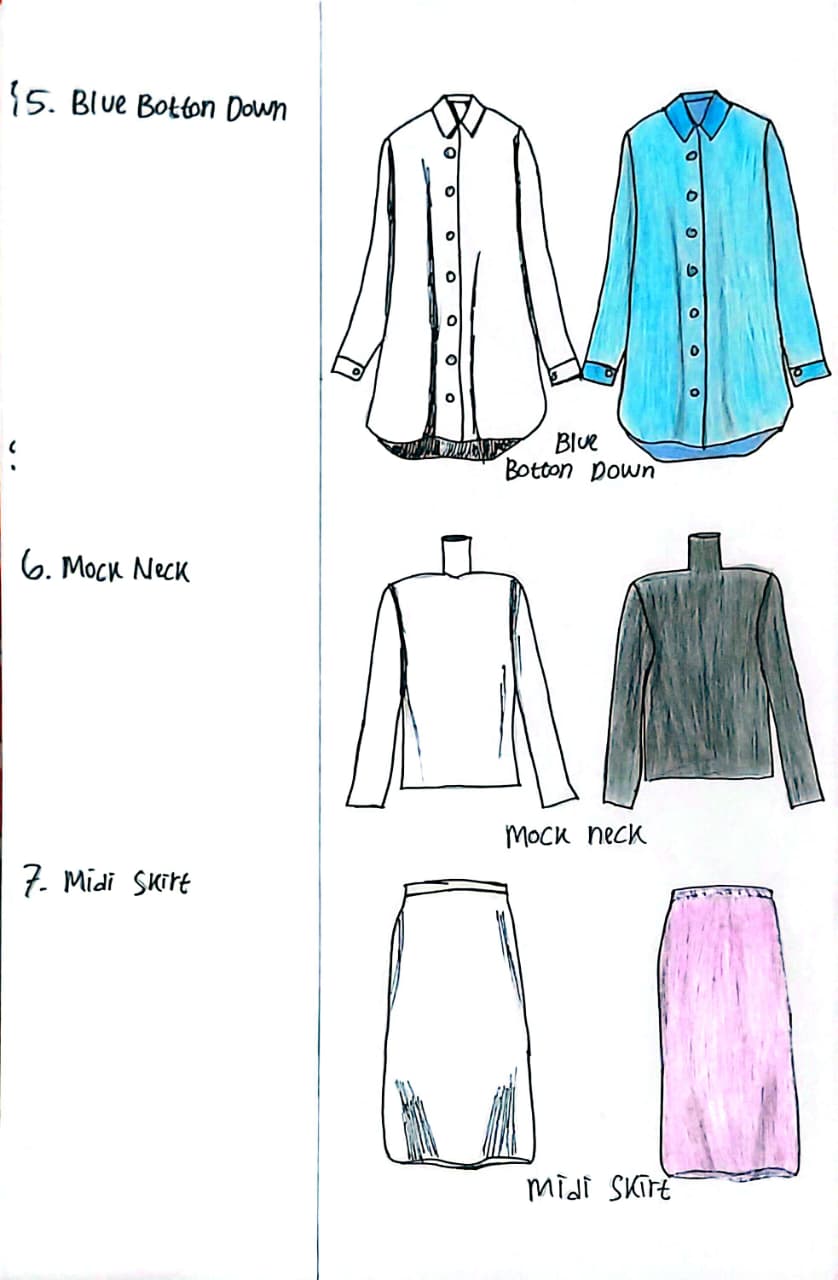 5. Blue Botton Down
Blue
Botton Down
6. Mock Neck
Mock neck
7. Midi Skirt
Midi Skirt